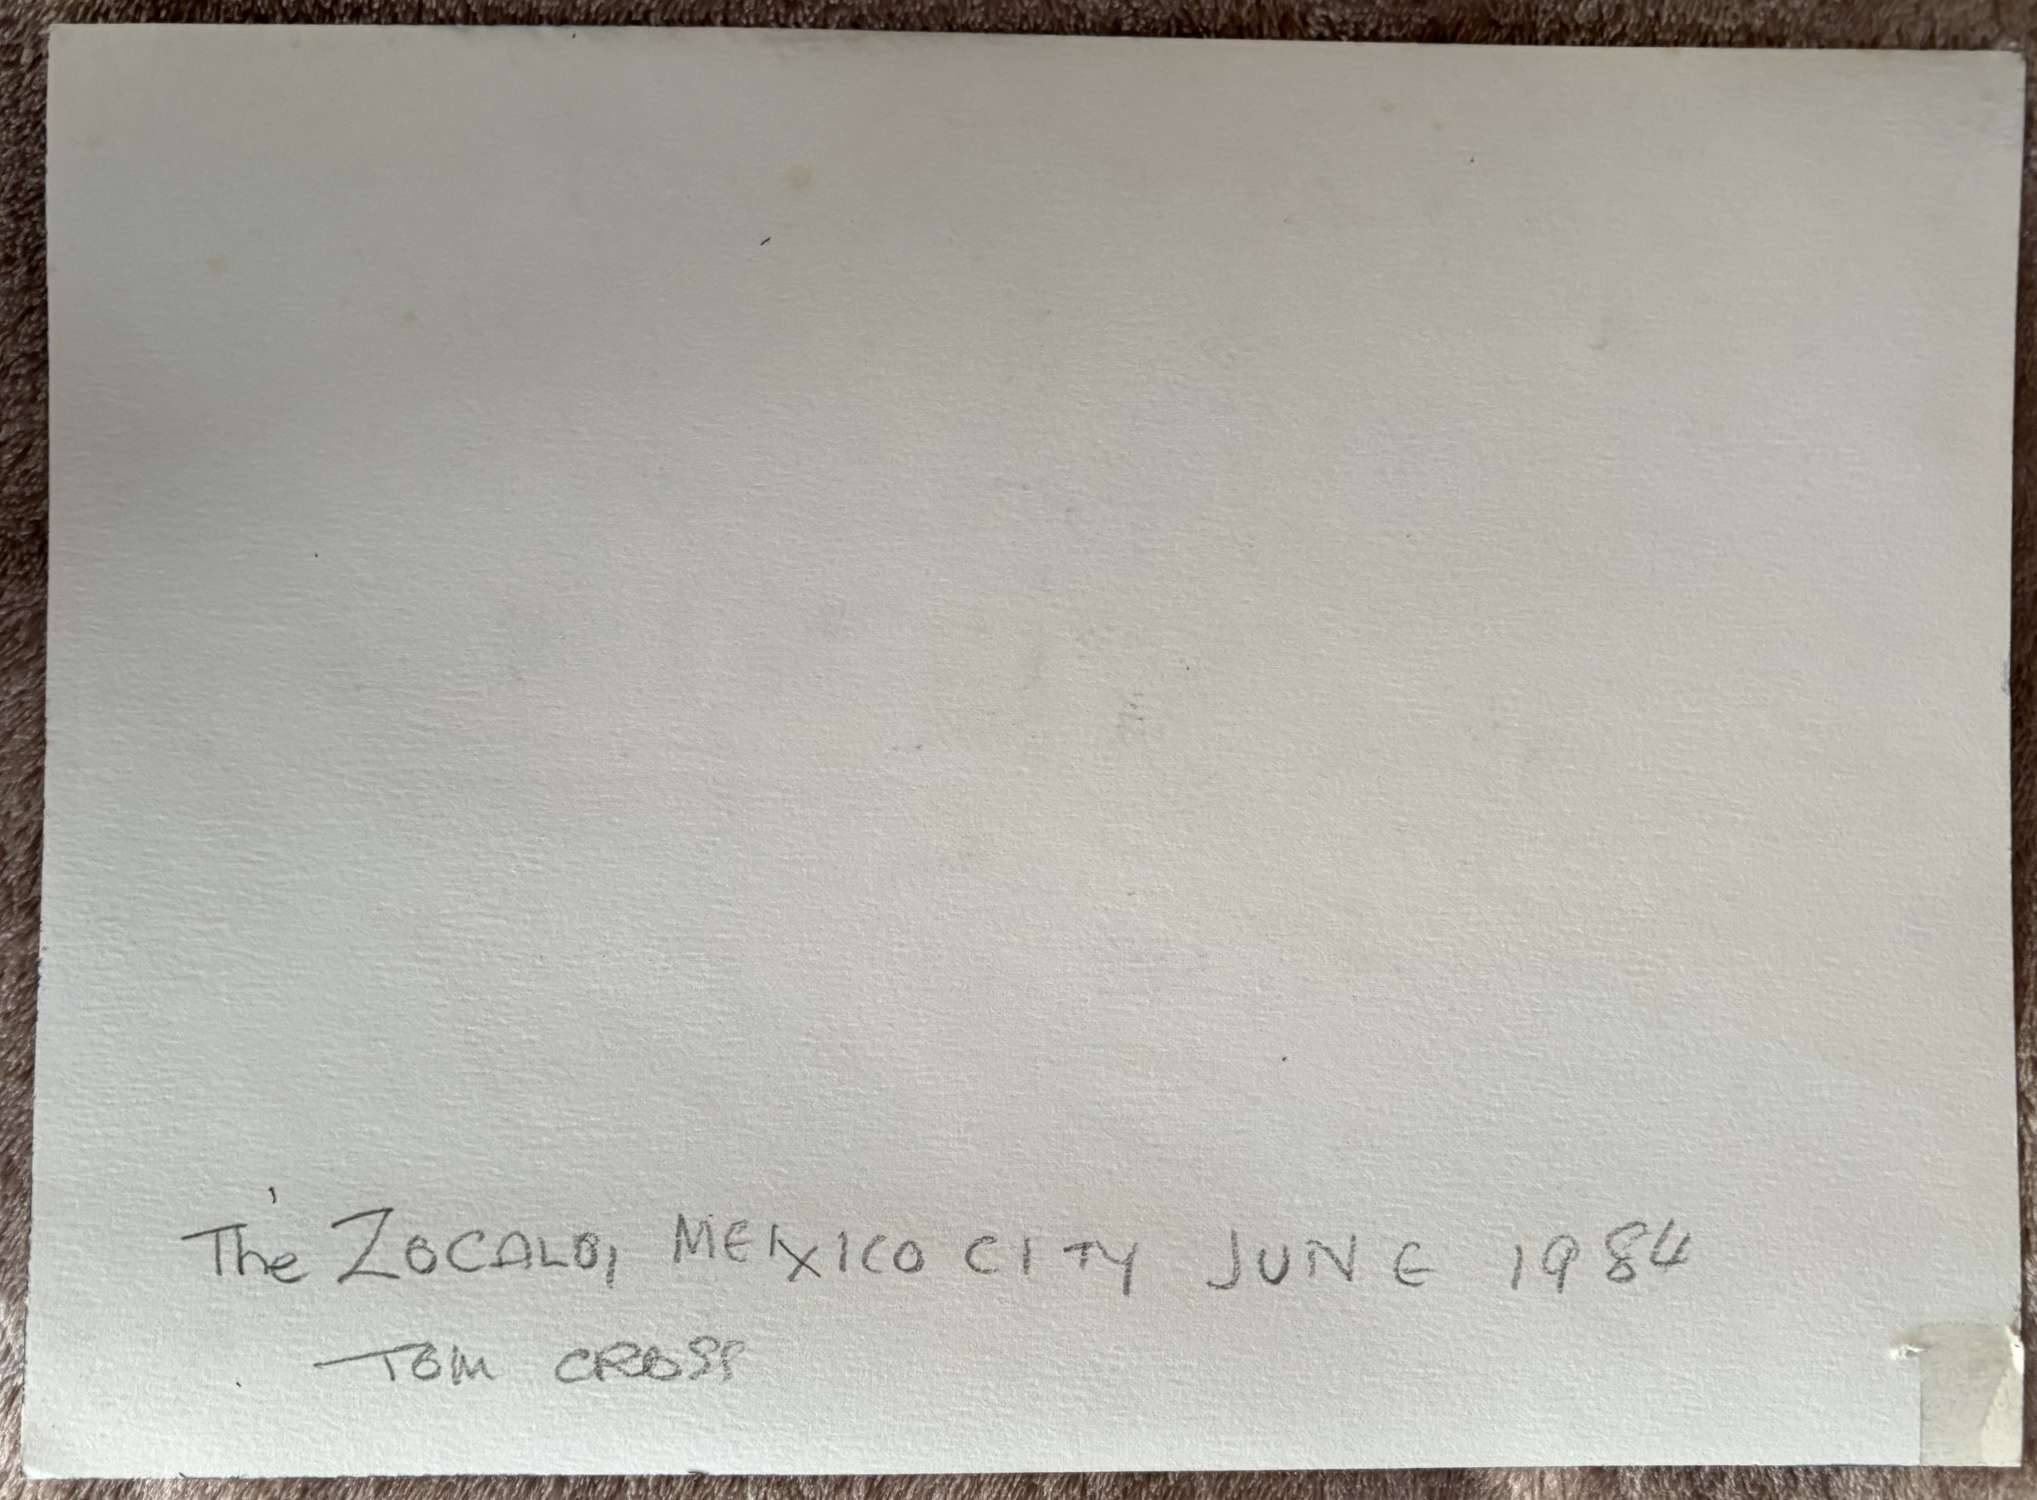 The ZOCALO, MEXICO CITY JUNE 1984
TOM CROSS